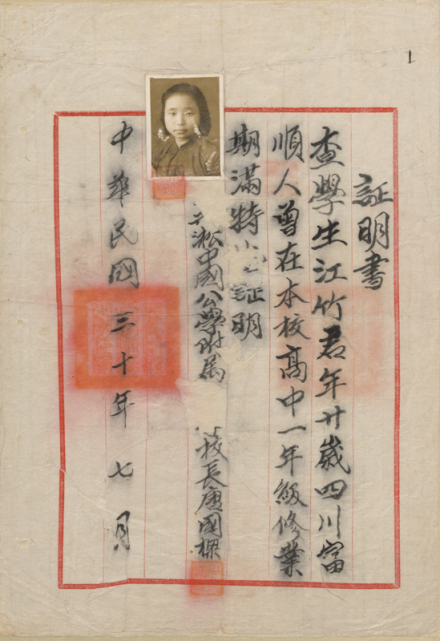 1
証明書
查學生江竹君年廿歲四川富
順人曾在本校高中一年級修業
期滿特此証明
淞中國公學附属 校長唐國樑
中華民國三十年七月